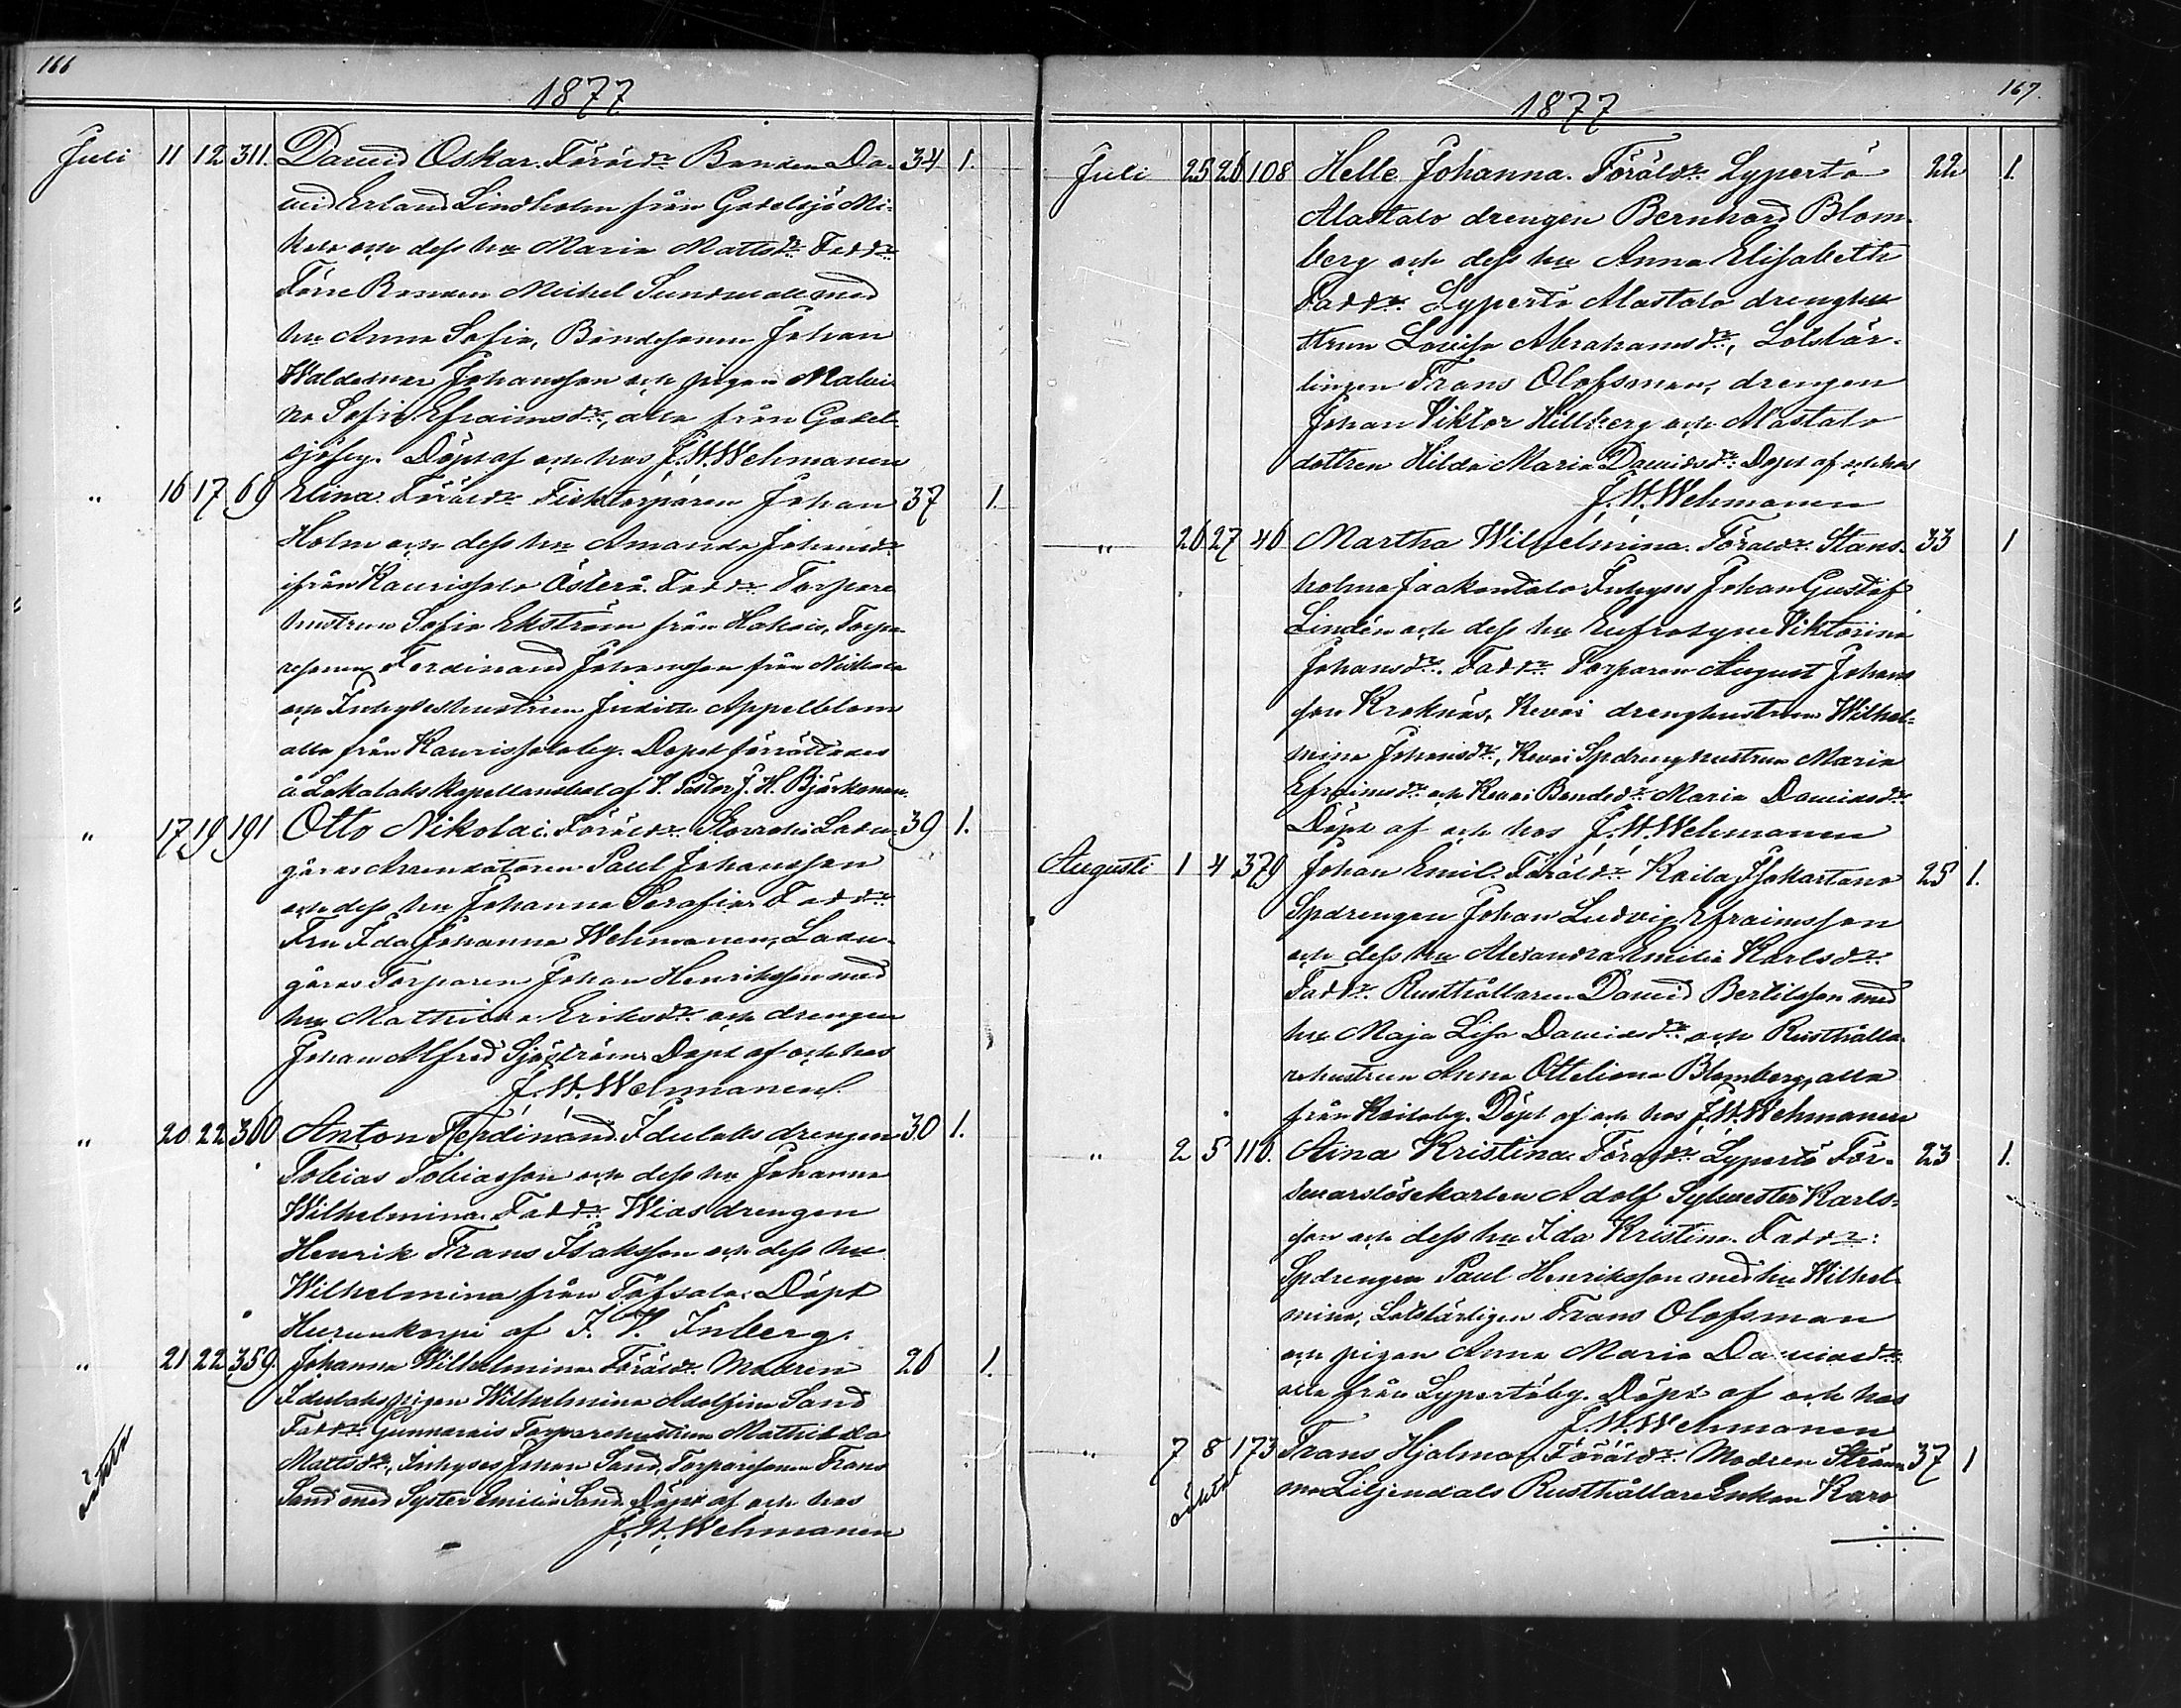 166
1877
Juli 11 12 311. David Oskar. Föräldr Bonden Da- 34 1.
vid Erland Lindholm från Godelsjö Mi-
kola och dess hu Maria Mattsdr. Faddr
Förre Bonden Michel Sundvall med
hu Anna Sofia, Bondesonen Johan
Waldemar Johansson och pigan Malvi-
na Sofia Efraimsdr, alla från Godel-
sjöby. Döpt af och hos J. W. Wehmanen
" 16 17 69 Elina. Föräldr Fisktorparen Johan 37 1.
Holm och dess hu Amanda Johansdr
ifrån Kaurissalo Österå. Faddr Torpare
hustrun Sofia Ekström från Hakais, Torpa-
resonen Ferdinand Johansson från
och Inhyseshustrun Judith Appelblom
alla från Kaurissaloby. Dopet förrättades
å Lokalaks Kapellansbol af V. Pastor J. H. Björkman.
" 17 19 191 Otto Nikolai. Föräldr Storrahi Ladu- 39 1.
gårds Arrendatoren Paul Johansson
och dess hu Johanna Serafia. Faddr
Fru Ida Johanna Wehmanen, Ladu-
gårds Torparen Johan Henriksson med
hu Mathilda Eriksdr och drengen
Johan Alfred Sjöström. Döpt af och hos
J. W. Wehmanen.
" 20 22 360 Anton Ferdinand. Idulaks drengen 30 1.
Tobias Tobiasson och dess hu Johanna
Wilhelmina. Faddr. Wias drengen
Henrik Frans Isaksson och dess hu
Wilhelmina från Töfsala. Döpt
af J. V. Inberg.
" 21 22 359. Johanna Wilhelmina. Föräldr. Modren 26 1.
Idulaks pigan Wilhelmina Adolfina Sand
Faddr. Gunnarais Torparehustrun Mathilda
Mattsdr, Inhyses Johan Sand, Torparesonen Frans
Sand med Syster Emilia Sand. Döpt af och hos
oäkta
J. W. Wehmanen
167.
1877
Juli 25 26 108 Helle Johanna. Föräldr. Lypertö 22 1.
Alastalo drengen Bernhard Blom-
berg och dess hu Anna Elisabeth
Faddr. Lypertö Alastalo drenghu-
strun Lovisa Abrahamsdr, Lotslär-
lingen Frans Olofsman, drengen
Johan Viktor Hillberg och Alastalo
dottren Hilda Maria Davidsdr. Döpt af och hos
J. W. Wehmanen
" 26 27 46 Martha Wilhelmina. Föräldr. Stans- 33 1
holma Jaakontalo Inhyses Johan Gustaf
Lindén och dess hu Eufrosyne Viktorina
Johansdr. Faddr Torparen August Johans
son Kroknäs, Kevoi drenghustrun Wilhel-
mina Johansdr, Kevoi Spdrenghustrun Maria
Efraimsdr och Kevoi Bondedr Maria Davidsdr
Döpt af och hos J. W. Wehmanen
Augusti 1 4 379 Johan Emil. Föräldr Kaila Isokartano 25 1.
Spdrengen Johan Ludvig Efraimsson
och dess hu Alexandra Emilia Karlsdr
Faddr. Rusthållaren David Bertilsson med
hu Maja Lisa Davidsdr och Rusthålla-
rehustrun Anna Otteliana Blomberg, alla
från Kailaby. Döpt af och hos J. W. Wehmanen
" 2 5 110. Aina Kristina. Föräldr Lypertö För- 23 1.
svarslösekarlen Adolf Sylvester Karls-
son och dess hu Ida Kristina. Faddr:
Spdrengen Paul Henriksson med hu Wilhel-
mina, Lotslärligen Frans Olofsman
och pigan Anna Maria Davidsdr
alla från Lypertöby. Döpt af och hos
J. W. Wehmanen
" 7 8 173 Frans Hjalmar. Föräldr. Modren Ström- 37 1
oäkta
ma Liljendals Rusthållare Enkan Karo